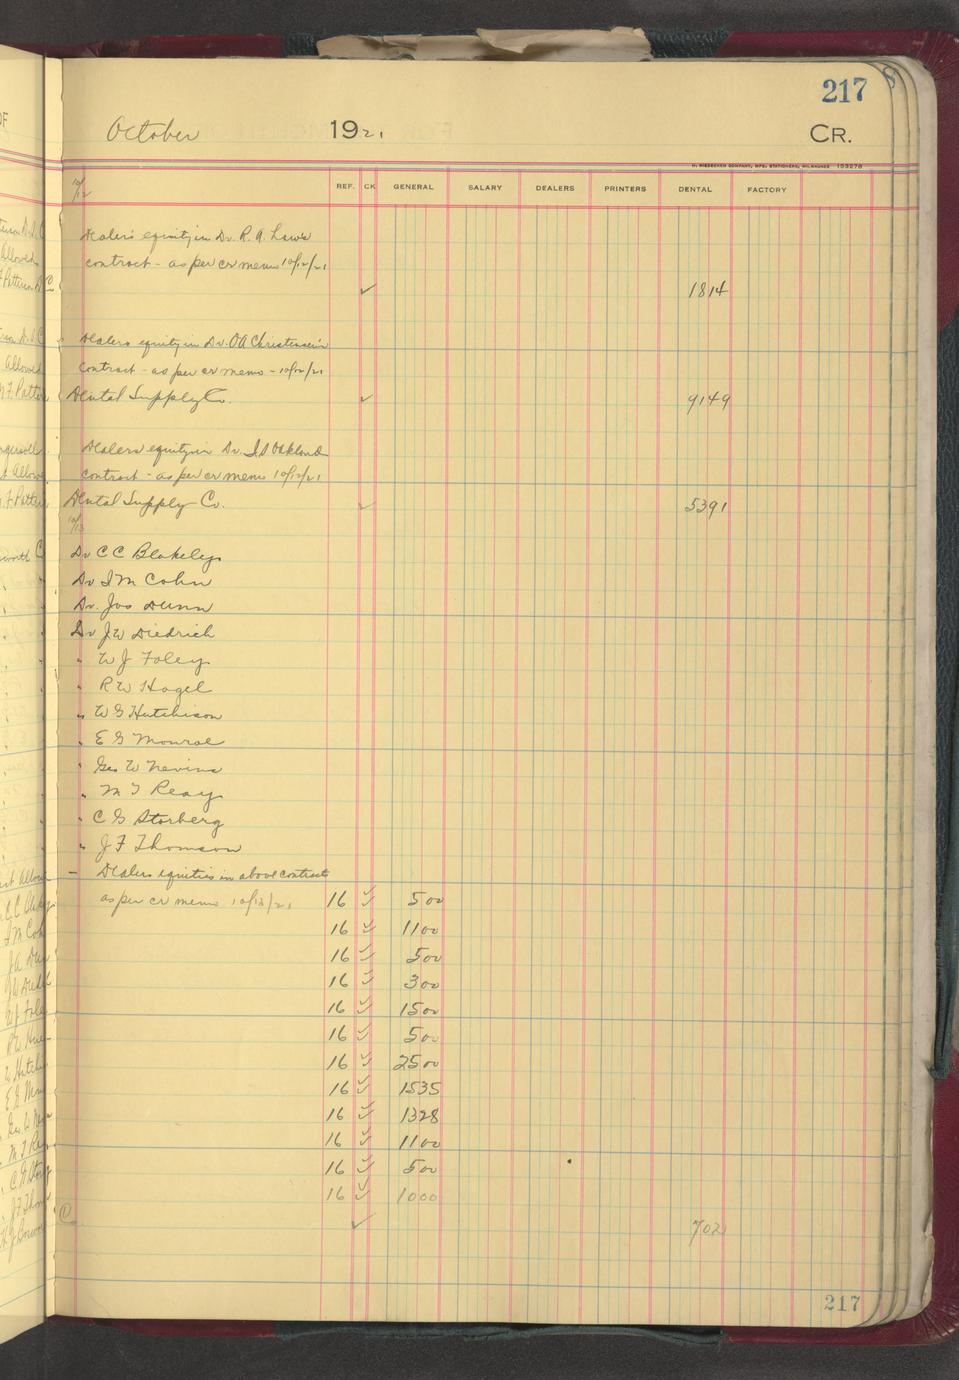 217
October 1921 CR.
H. NIEDECKEN COMPANY, MFG. STATIONERS, MILWAUKEE 153278
10/12 REF. CK GENERAL SALARY DEALERS PRINTERS DENTAL FACTORY
Dealers equity in Dr. R. A. Law's
contract - as per cr memo 10/12/21
✓ 1814
Dealers equity in Dr. O A Christensen's
contract - as per cr memo - 10/12/21
Dental Supply Co. ✓ 9149
Dealers equity in Dr. I. S Oakland
contract - as per cr memo 10/12/21
Dental Supply Co. ✓ 5391
10/13
Dr C C Blakeley
Dr I M Cohn
Dr. Jos Dunn
Dr J W Diedrich
" W J Foley
" R W Hagel
" W G Hutchison
" E G Monroe
" Geo W Nevins
" M T Reay
" C G Storberg
" J F Thomson
— Dealers equities in above contracts
as per cr memo 10/13/21 16 ✓ 500
16 ✓ 1100
16 ✓ 500
16 ✓ 300
16 ✓ 1500
16 ✓ 500
16 ✓ 2500
16 ✓ 1535
16 ✓ 1328
16 ✓ 1100
16 ✓ 500
16 ✓ 1000
✓ 702
217